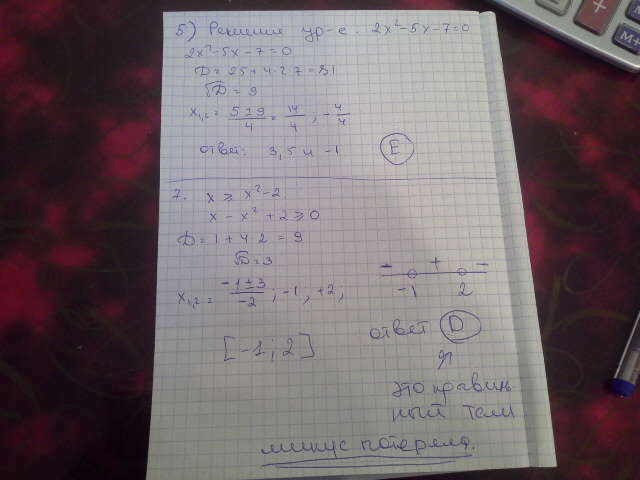 5) Решение ур-е. 2x²-5x-7=0
2x²-5x-7=0
D = 25+4·2·7=81
√D = 9
x₁,₂ = (5±9)/4 = 14/4 ; -4/4
ответ: 3,5 и -1
E
7. x ⩾ x²-2
x - x² + 2 ⩾ 0
D = 1 + 4·2 = 9
√D = 3
x₁,₂ = (-1±3)/-2 ; -1 , +2 ;
- + -
-1 2
[-1 ; 2]
ответ D
это правиль
ный там
минус потеряла.
M+
+